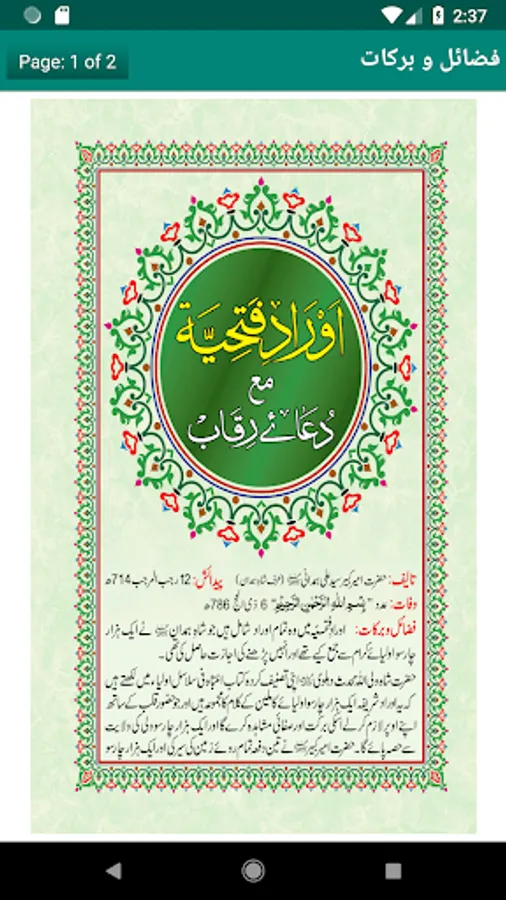 2:37
Page: 1 of 2
فضائل و برکات
اَوْرَادِ فَتَحِیَّة
مع
دُعَائے رِقَاب
تالیف: حضرت امیر کبیر سید علی ہمدانی (عرف شاہ ہمدان) پیدائش: 12 رجب المرجب 714ھ
وفات: عدد "بِسْمِ اللهِ الرَّحْمٰنِ الرَّحِيْمِ" 6 ذی الحج 786ھ
فضائل و برکات: اوراد فتحیہ میں وہ تمام اوراد شامل ہیں جو شاہ ہمدان نے ایک ہزار
چار سو اولیائے کرام سے جمع کیے تھے اور انہیں پڑھنے کی اجازت حاصل کی تھی۔
حضرت شاہ ولی اللہ محدث دہلوی اپنی تصنیف کردہ کتاب الانتباہ فی سلاسل اولیاء میں لکھتے ہیں
کہ یہ اوراد شریف ایک ہزار چار سو اولیائے کاملین کے کلام کا مجموعہ ہیں اور جو حضور قلب کے ساتھ
اپنے اوپر لازم کرلے اسکی برکت اور صفائی مشاہدہ کرے گا اور ایک ہزار چار سو ولی کی ولایت
سے حصہ پائے گا۔ حضرت امیر کبیر نے تین دفعہ تمام روئے زمین کی سیر کی اور ایک ہزار چار سو